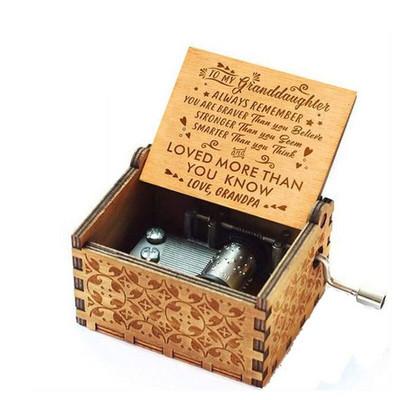 TO MY Granddaughter
ALWAYS REMEMBER
YOU ARE BRAVER Than you Believe
STRONGER Than you Seem
SMARTER Than you Think
AND
LOVED MORE THAN
YOU KNOW
LOVE, GRANDPA